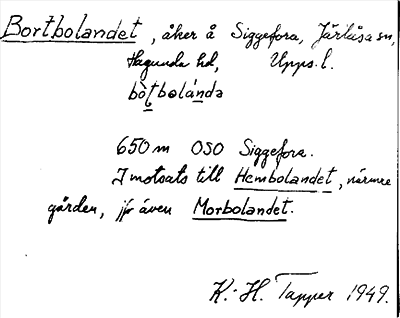 Bortbolandet, åker å Siggefora, Järlåsa sn,
Hagunda hd, Upps. l.
bòt̩bolánda
650 m OSO Siggefora.
I motsats till Hembolandet, närmre
gården, jfr även Morbolandet.
K.-H. Tapper 1949.